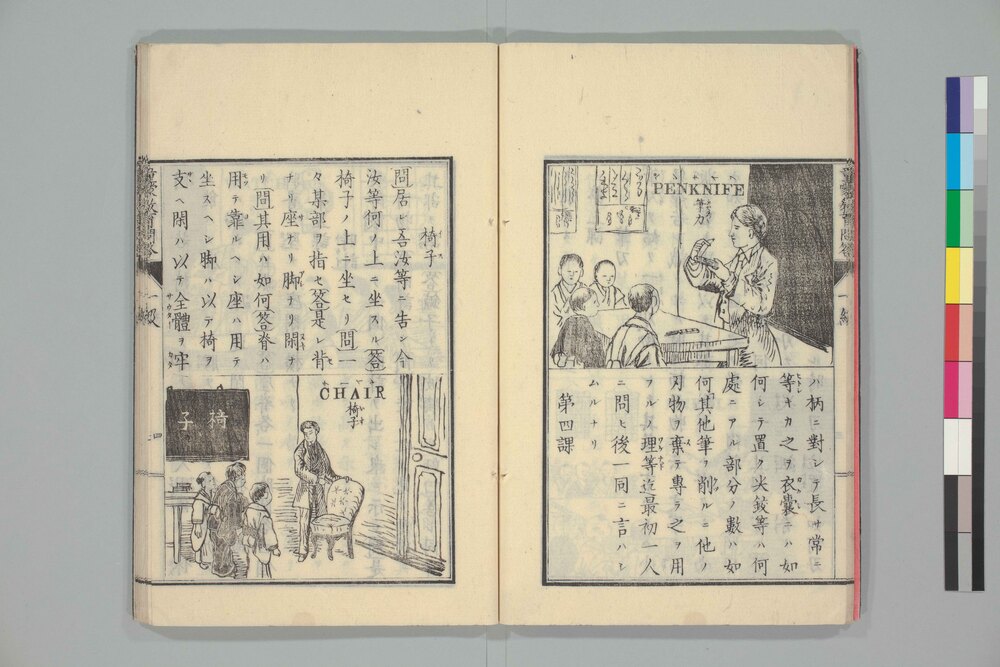 PENKNIFE
筆刀
ハ柄ニ對シテ長サ常ニ
等キカ之ヲ衣囊ニハ如
何シテ置ク尖鋭等ハ何
處ニアル部分ノ數ハ如
何其他筆ヲ削ルニ他ノ
刃物ヲ棄テ專ラ之ヲ用
フルノ理等迄最初一人
ニ問ヒ後一同ニ言ハシ
ムルナリ
第四課
椅子
問居レ吾汝等ニ告シ今
汝等何ノ上ニ坐スル答
椅子ノ上ニ坐セリ問一
々某部ヲ指セ答是レ背
ナリ座ナリ脚ナリ閑ナ
リ問其用ハ如何答脊ハ
用テ靠ルヘシ座ハ用テ
坐スヘシ脚ハ以テ椅ヲ
支ヘ閑ハ以テ全體ヲ牢
CHAIR
椅子
椅子